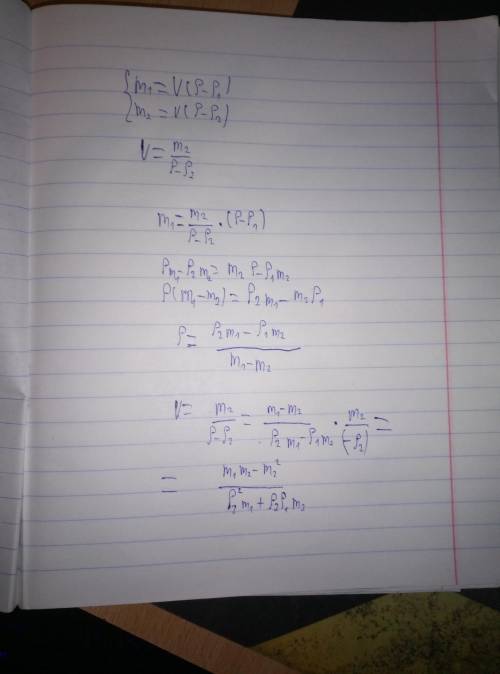 {m₁ = V(ρ-ρ₁)
{m₂ = V(ρ-ρ₂)
V = m₂/(ρ-ρ₂)
m₁ = m₂/(ρ-ρ₂) · (ρ-ρ₁)
ρm₁ - ρ₂m₂ = m₂ρ - ρ₁m₂
ρ(m₁-m₂) = ρ₂m₁ - m₂ρ₁
ρ = (ρ₂m₁ - ρ₁m₂)/(m₁-m₂)
V = m₂/(ρ-ρ₂) = (m₁-m₂)/(ρ₂m₁-ρ₁m₂) · m₂/(-ρ₂) =
= (m₁m₂ - m₂²)/(ρ₂²m₁ + ρ₂ρ₁m₂)